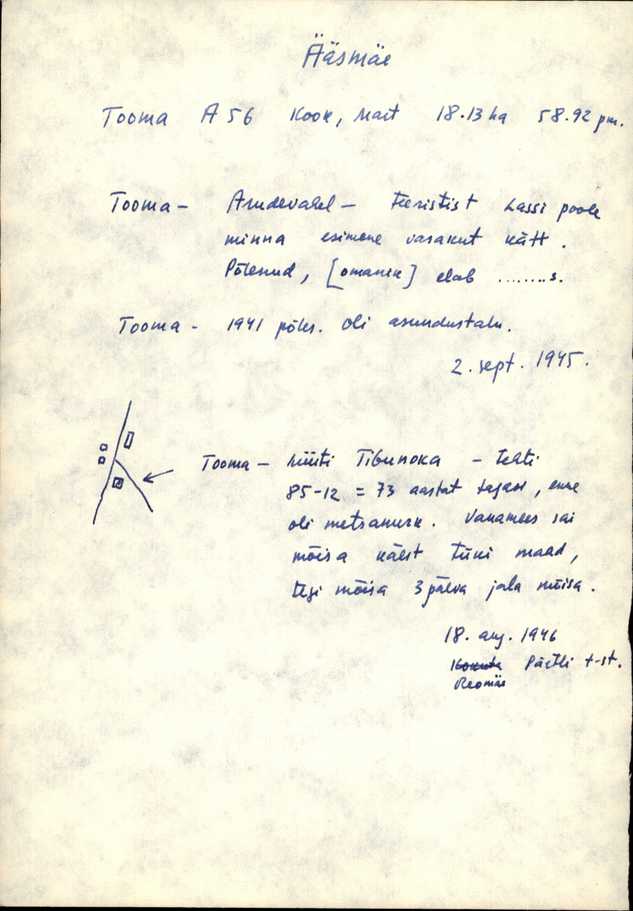 Ääsmäe
Tooma A 56 Kook, Mart 18.13 ha 58.92 pm.
Tooma - Arudevahel - teeristist Lassi poole
minna esimene vasakut kätt.
Põlenud, [omanik] elab ........s.
Tooma - 1941 põles. Oli asundustalu.
2. sept. 1945.
Tooma - hüüti Tibunoka - tehti
85-12 = 73 aastat tagasi, enne
oli metsanurk. Vanamees sai
mõisa käest tüki maad,
tegi mõisa 3 päeva jala mõisa.
18. aug. 1946
Pärtli t-st.